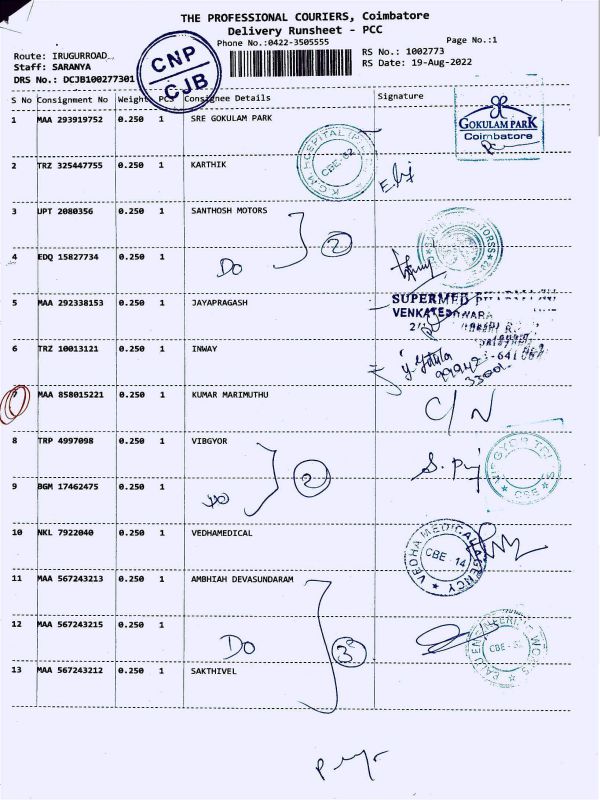 THE PROFESSIONAL COURIERS, Coimbatore
Delivery Runsheet - PCC
Phone No.:0422-3505555
Page No.:1
Route: IRUGURROAD
Staff: SARANYA
DRS No.: DCJB100277301
RS No.: 1002773
RS Date: 19-Aug-2022
CNP
CJB
S No Consignment No Weight PCS Consignee Details Signature
1 MAA 293919752 0.250 1 SRE GOKULAM PARK
GOKULAM PARK
Coimbatore
2 TRZ 325447755 0.250 1 KARTHIK
3 UPT 2080356 0.250 1 SANTHOSH MOTORS
2
4 EDQ 15827734 0.250 1
Do
5 MAA 292338153 0.250 1 JAYAPRAGASH
SUPERMED
VENKATESHWARA
6 TRZ 10013121 0.250 1 INWAY
7 MAA 858015221 0.250 1 KUMAR MARIMUTHU
C/N
8 TRP 4997098 0.250 1 VIBGYOR
2
9 BGM 17462475 0.250 1
Do
10 NKL 7922040 0.250 1 VEDHAMEDICAL
VEDHA MEDICAL AGENCY
CBE - 14
11 MAA 567243213 0.250 1 AMBHIAH DEVASUNDARAM
12 MAA 567243215 0.250 1
Do
3
13 MAA 567243212 0.250 1 SAKTHIVEL